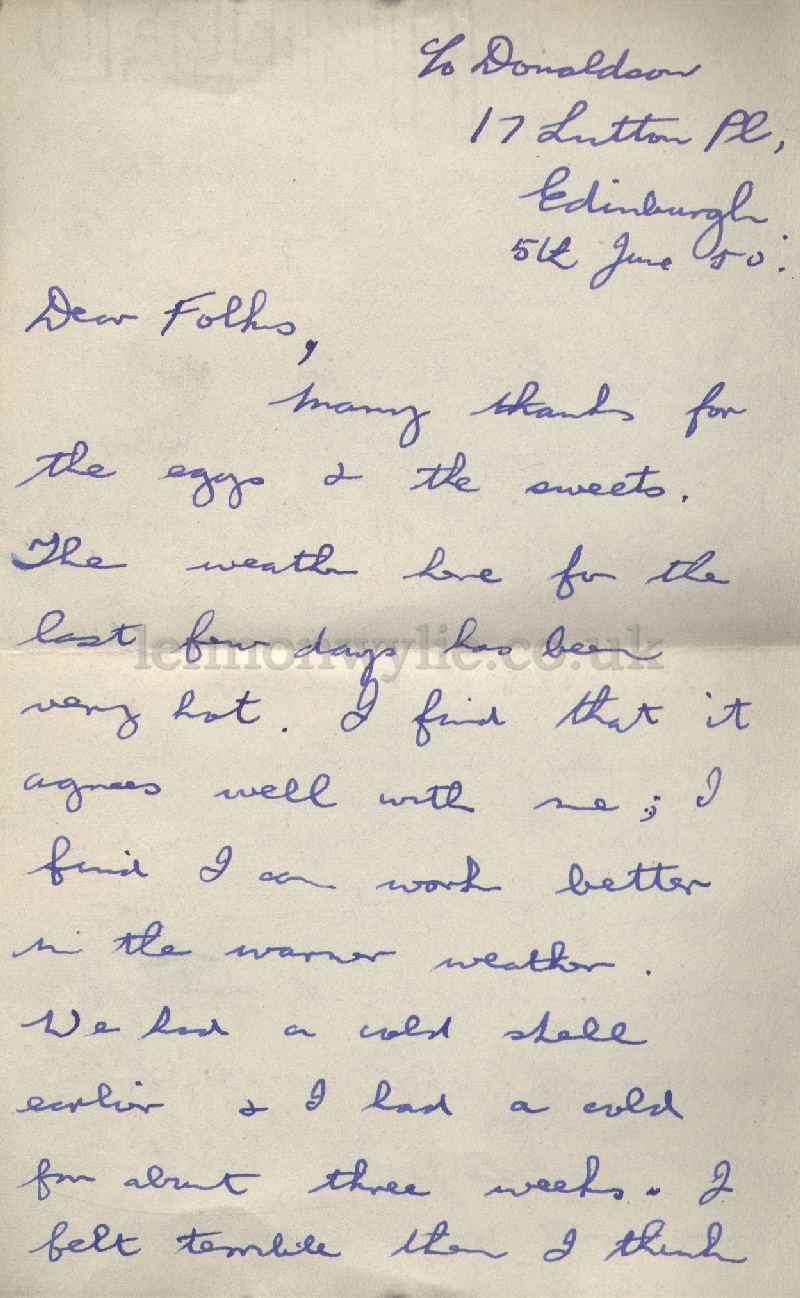 c/o Donaldson
17 Lutton Pl,
Edinburgh
5th June 50.
Dear Folks,
Many thanks for
the eggs & the sweets.
The weather here for the
last few days has been
lennonwylie.co.uk
very hot. I find that it
agrees well with me; I
find I can work better
in the warmer weather.
We had a cold shell
earlier & I had a cold
for about three weeks. I
felt terrible then I think